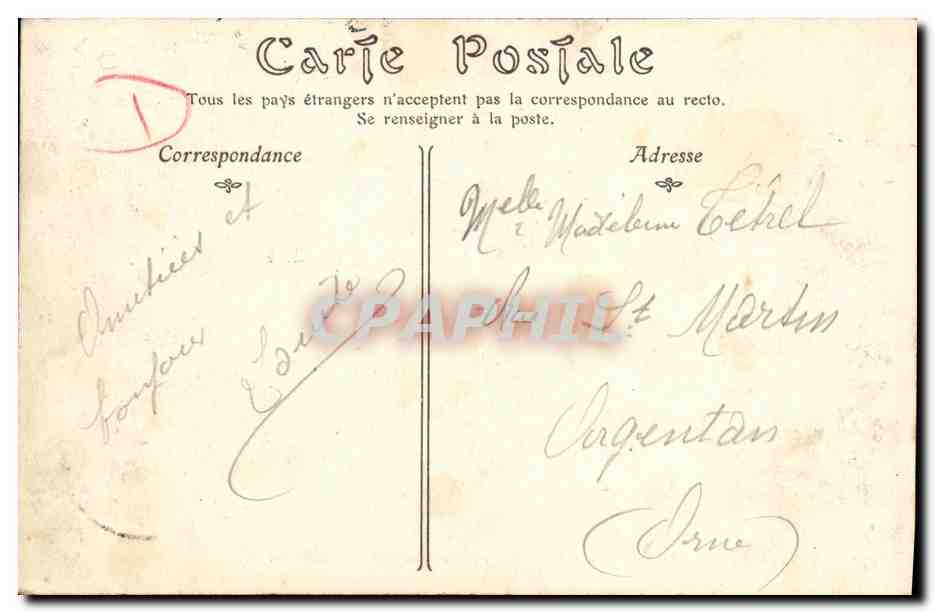 Carte Postale
Tous les pays étrangers n'acceptent pas la correspondance au recto.
Se renseigner à la poste.
D
Correspondance
Amitiés et
bonjour
Adresse
Melle Madeleine Tétrel
Rue St Martin
Argentan
(Orne)
CPAPHIL